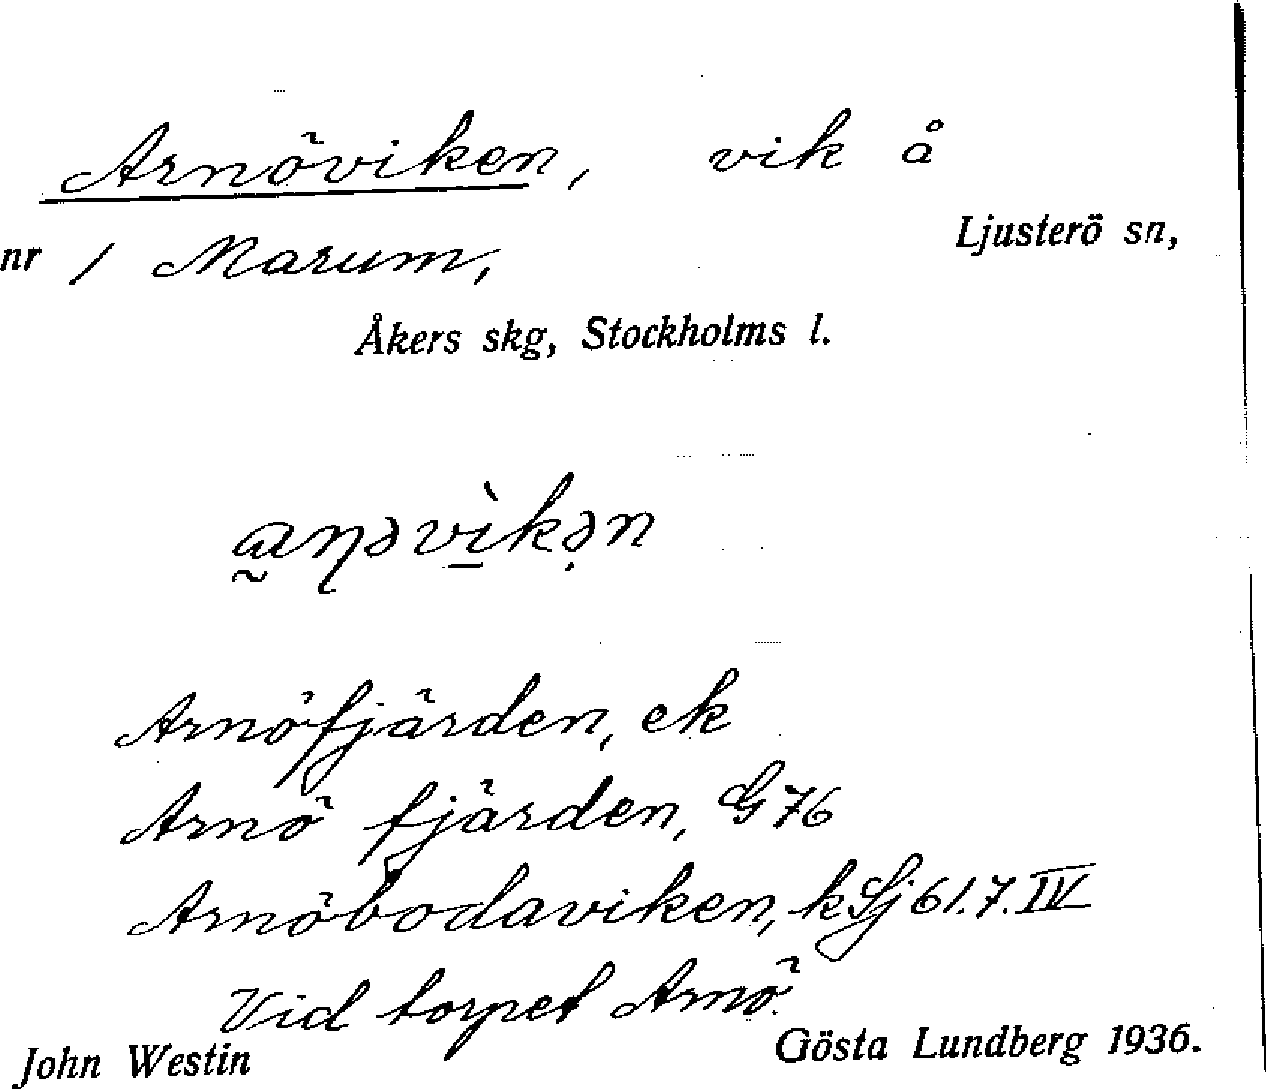 Arnöviken, vik å
Ljusterö sn,
nr 1 Marum,
Åkers skg, Stockholms l.
Arnöfjärden, ek
Arnö fjärden, G 76
Arnöbodaviken, k Lj 61.7.IV
Vid torpet Arnö.
John Westin Gösta Lundberg 1936.